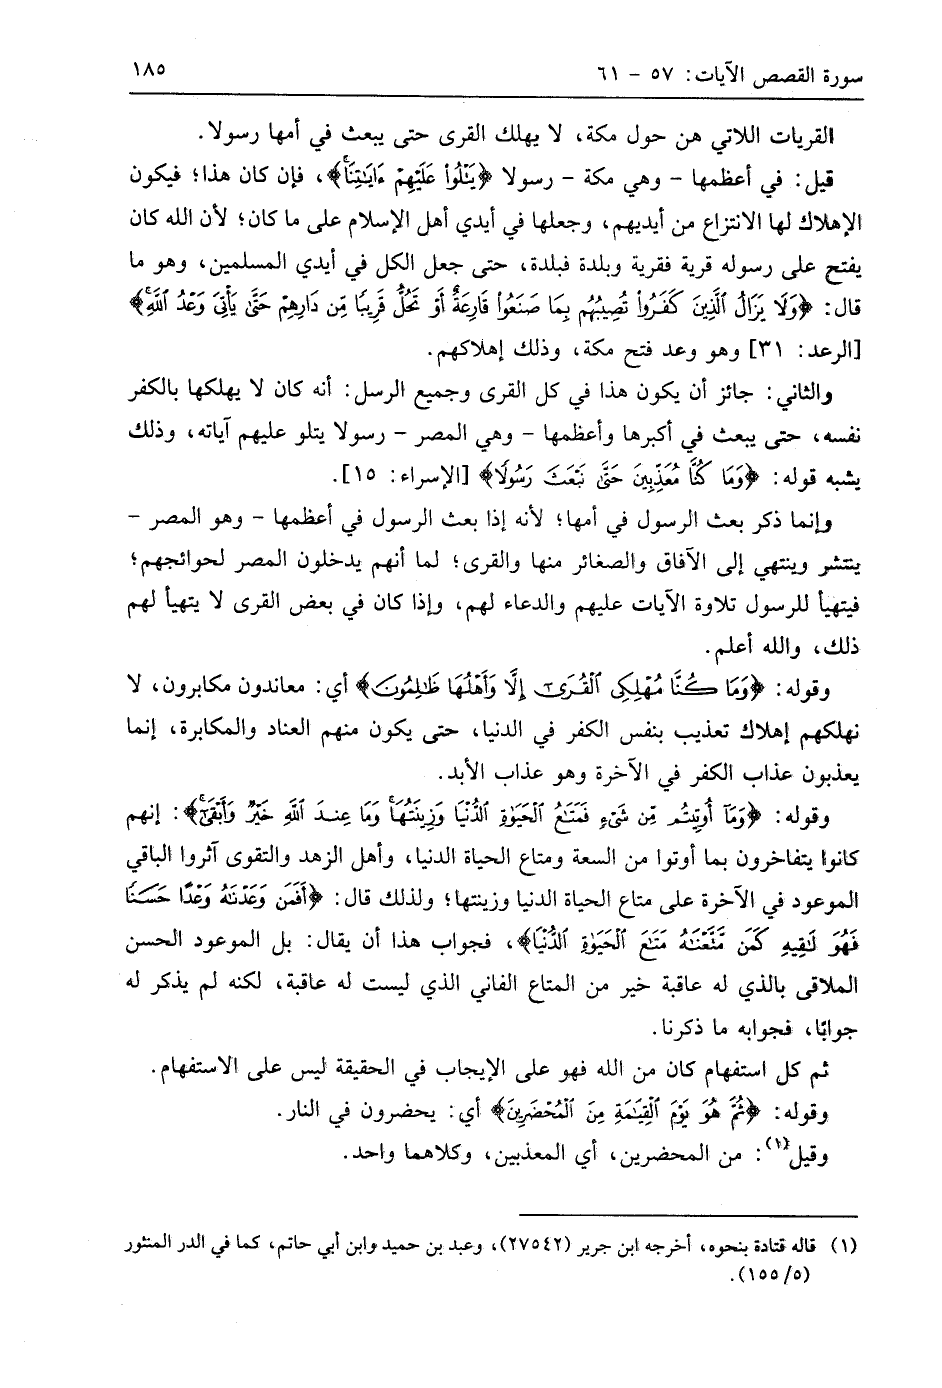 سورة القصص الآيات: ٥٧ - ٦١ ١٨٥
القريات اللاتي هن حول مكة، لا يهلك القرى حتى يبعث في أمها رسولا.
قيل: في أعظمها - وهي مكة - رسولا ﴿يَتْلُوا۟ عَلَيْهِمْ ءَايَٰتِنَاۚ﴾، فإن كان هذا؛ فيكون
الإهلاك لها الانتزاع من أيديهم، وجعلها في أيدي أهل الإسلام على ما كان؛ لأن الله كان
يفتح على رسوله قرية فقرية وبلدة فبلدة، حتى جعل الكل في أيدي المسلمين، وهو ما
قال: ﴿وَلَا يَزَالُ ٱلَّذِينَ كَفَرُوا۟ تُصِيبُهُم بِمَا صَنَعُوا۟ قَارِعَةٌ أَوْ تَحُلُّ قَرِيبًا مِّن دَارِهِمْ حَتَّىٰ يَأْتِىَ وَعْدُ ٱللَّهِۚ﴾
[الرعد: ٣١] وهو وعد فتح مكة، وذلك إهلاكهم.
والثاني: جائز أن يكون هذا في كل القرى وجميع الرسل: أنه كان لا يهلكها بالكفر
نفسه، حتى يبعث في أكبرها وأعظمها - وهي المصر - رسولا يتلو عليهم آياته، وذلك
يشبه قوله: ﴿وَمَا كُنَّا مُعَذِّبِينَ حَتَّىٰ نَبْعَثَ رَسُولًا﴾ [الإسراء: ١٥].
وإنما ذكر بعث الرسول في أمها؛ لأنه إذا بعث الرسول في أعظمها - وهو المصر -
ينتشر وينتهي إلى الآفاق والصغائر منها والقرى؛ لما أنهم يدخلون المصر لحوائجهم؛
فيتهيأ للرسول تلاوة الآيات عليهم والدعاء لهم، وإذا كان في بعض القرى لا يتهيأ لهم
ذلك، والله أعلم.
وقوله: ﴿وَمَا كُنَّا مُهْلِكِى ٱلْقُرَىٰٓ إِلَّا وَأَهْلُهَا ظَٰلِمُونَ﴾ أي: معاندون مكابرون، لا
نهلكهم إهلاك تعذيب بنفس الكفر في الدنيا، حتى يكون منهم العناد والمكابرة، إنما
يعذبون عذاب الكفر في الآخرة وهو عذاب الأبد.
وقوله: ﴿وَمَآ أُوتِيتُم مِّن شَىْءٍ فَمَتَٰعُ ٱلْحَيَوٰةِ ٱلدُّنْيَا وَزِينَتُهَاۚ وَمَا عِندَ ٱللَّهِ خَيْرٌ وَأَبْقَىٰٓۚ﴾: إنهم
كانوا يتفاخرون بما أوتوا من السعة ومتاع الحياة الدنيا، وأهل الزهد والتقوى آثروا الباقي
الموعود في الآخرة على متاع الحياة الدنيا وزينتها؛ ولذلك قال: ﴿أَفَمَن وَعَدْنَٰهُ وَعْدًا حَسَنًا
فَهُوَ لَٰقِيهِ كَمَن مَّتَّعْنَٰهُ مَتَٰعَ ٱلْحَيَوٰةِ ٱلدُّنْيَا﴾، فجواب هذا أن يقال: بل الموعود الحسن
الملاقى بالذي له عاقبة خير من المتاع الفاني الذي ليست له عاقبة، لكنه لم يذكر له
جوابًا، فجوابه ما ذكرنا.
ثم كل استفهام كان من الله فهو على الإيجاب في الحقيقة ليس على الاستفهام.
وقوله: ﴿ثُمَّ هُوَ يَوْمَ ٱلْقِيَٰمَةِ مِنَ ٱلْمُحْضَرِينَ﴾ أي: يحضرون في النار.
وقيل(١): من المحضرين، أي المعذبين، وكلاهما واحد.
(١) قاله قتادة بنحوه، أخرجه ابن جرير (٢٧٥٤٢)، وعبد بن حميد وابن أبي حاتم، كما في الدر المنثور
(٥/ ١٥٥).